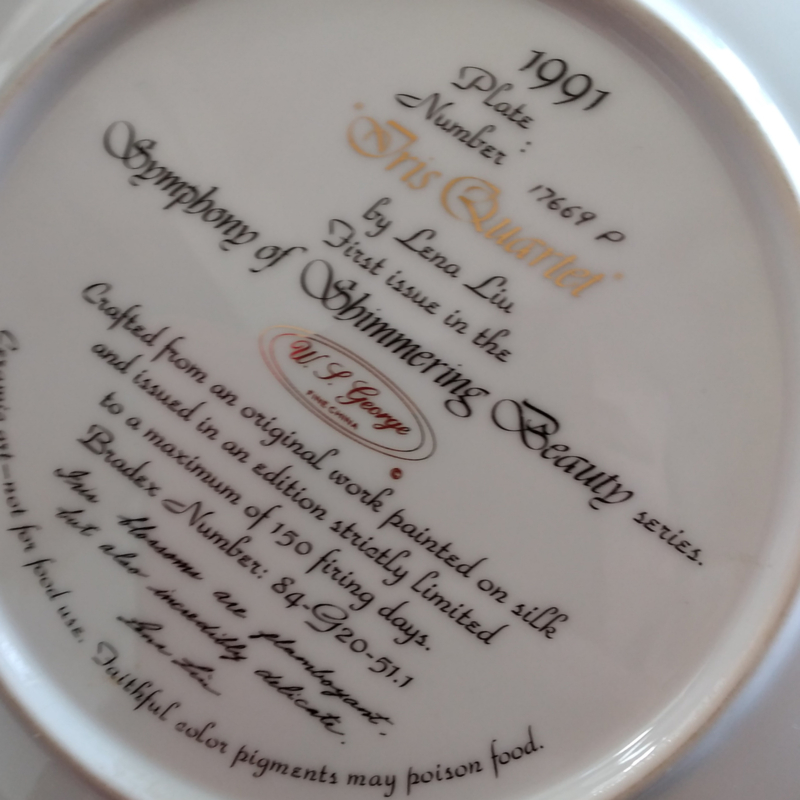 1991
Plate
Number :
17669 P
"Iris Quartet"
by Lena Liu
First issue in the
Symphony of Shimmering Beauty series.
W. S. George
FINE CHINA
©
Crafted from an original work painted on silk
and issued in an edition strictly limited
to a maximum of 150 firing days.
Bradex Number: 84-G20-51.1
Iris blossoms are flamboyant,
but also incredibly delicate.
Lena Liu
Ceramic art—not for food use. Faithful color pigments may poison food.